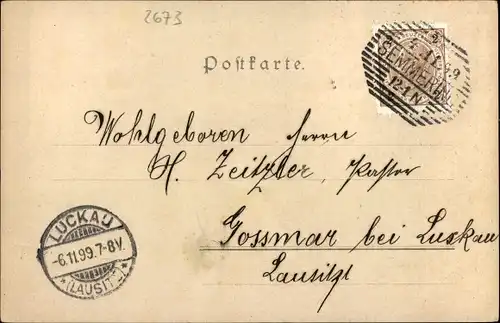 2673
Postkarte.
SEMMERING
12-1.N
Wohlgeboren Herrn
H. Zeitzler, Pastor
Gossmar bei Luckau
Lausitz
LUCKAU
-6.11.99.7-8V.
*(LAUSITZ)*